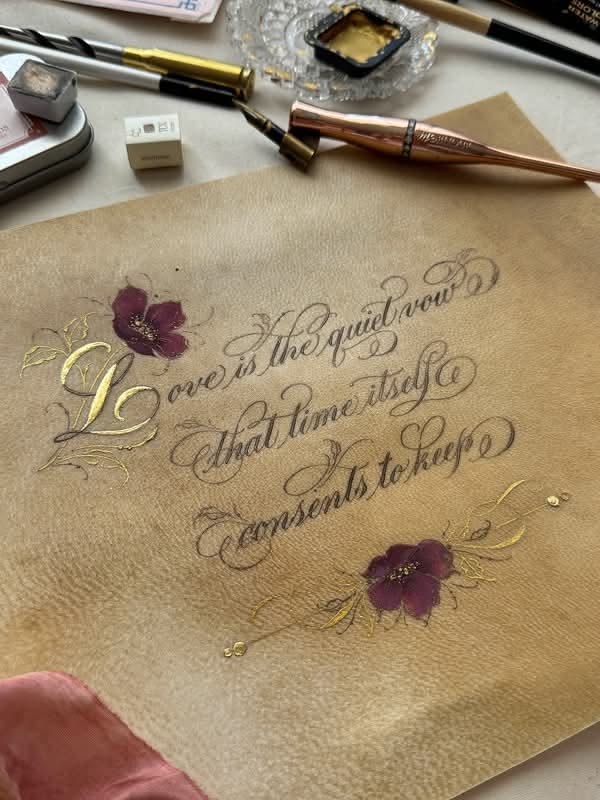 Love is the quiet vow
that time itself
consents to keep